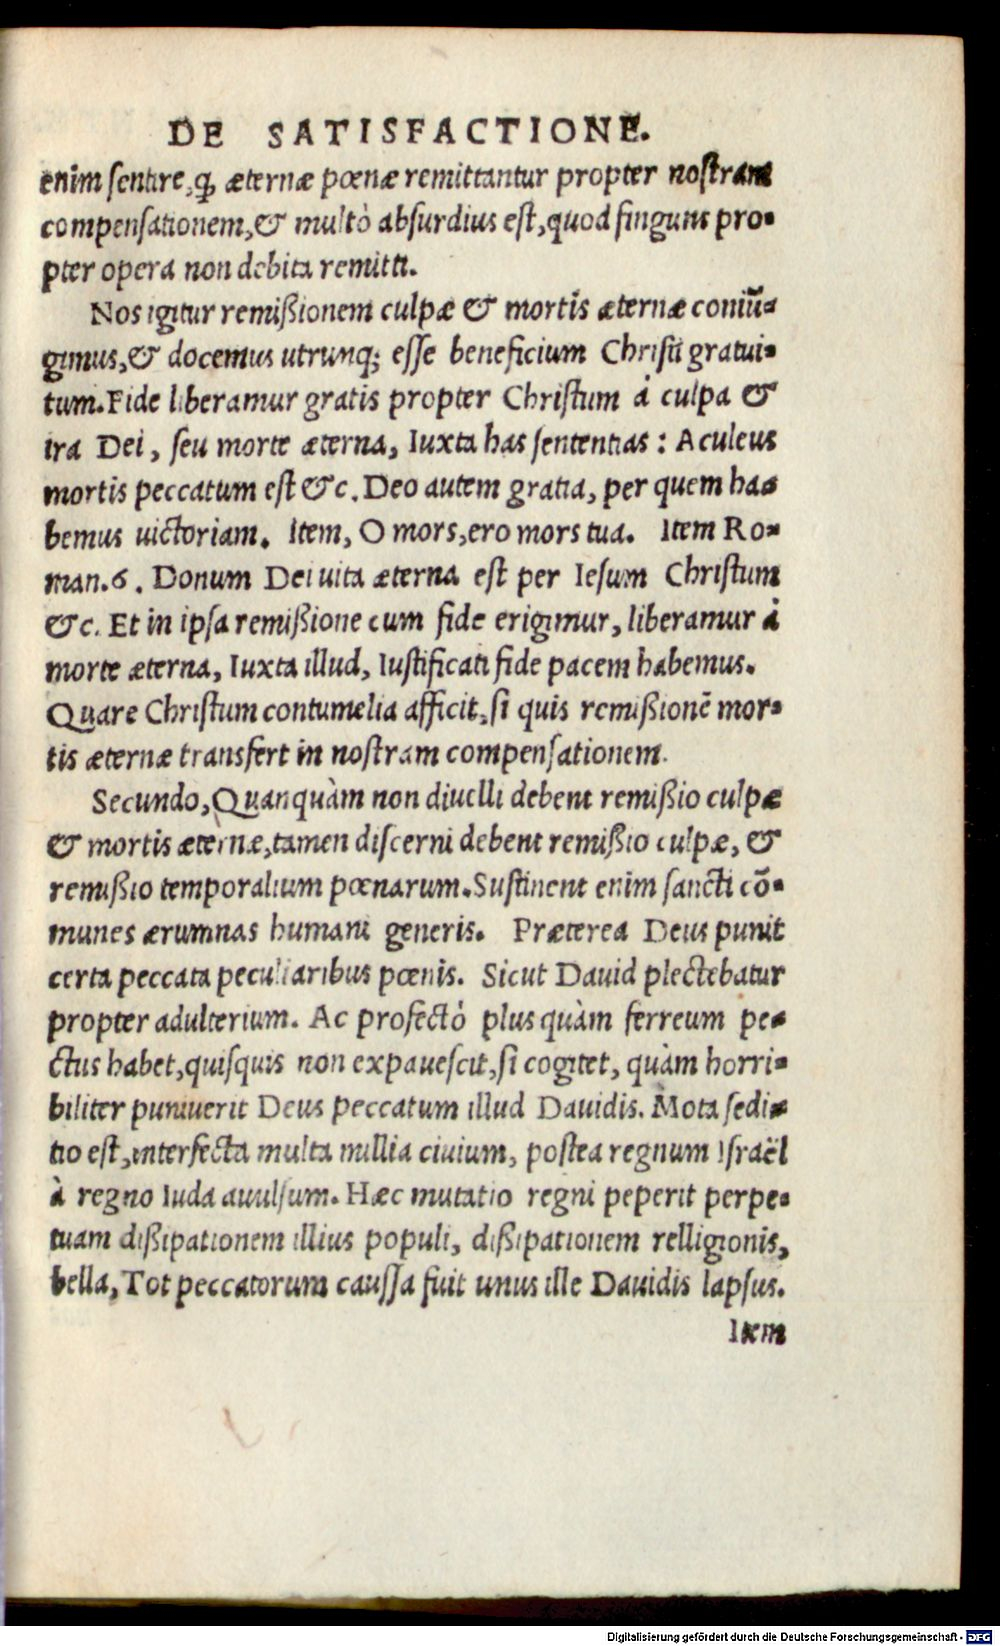 DE SATISFACTIONE.
enim sentire, ꝙ æternæ pœnæ remittantur propter nostram
compensationem, & multò absurdius est, quod fingunt pro-
pter opera non debita remitti.
Nos igitur remißionem culpæ & mortis æternæ coniũ-
gimus, & docemus utrunq; esse beneficium Christi gratui-
tum. Fide liberamur gratis propter Christum à culpa &
ira Dei, seu morte æterna, Iuxta has sententias: Aculeus
mortis peccatum est &c. Deo autem gratia, per quem ha-
bemus uictoriam. Item, O mors, ero mors tua. Item Ro-
man. 6. Donum Dei uita æterna est per Iesum Christum
&c. Et in ipsa remißione cum fide erigimur, liberamur à
morte æterna, Iuxta illud, Iustificati fide pacem habemus.
Quare Christum contumelia afficit, si quis remißionẽ mor-
tis æternæ transfert in nostram compensationem.
Secundo, Quanquàm non diuelli debent remißio culpæ
& mortis æternæ, tamen discerni debent remißio culpæ, &
remißio temporalium pœnarum. Sustinent enim sancti cõ-
munes ærumnas humani generis. Præterea Deus punit
certa peccata peculiaribus pœnis. Sicut Dauid plectebatur
propter adulterium. Ac profectò plus quàm ferreum pe-
ctus habet, quisquis non expauescit, si cogitet, quàm horri-
biliter puniuerit Deus peccatum illud Dauidis. Mota sedi-
tio est, interfecta multa millia ciuium, postea regnum Israël
à regno Iuda auulsum. Hæc mutatio regni peperit perpe-
tuam dißipationem illius populi, dißipationem relligionis,
bella, Tot peccatorum caussa fuit unus ille Dauidis lapsus.
Item
Digitalisierung gefördert durch die Deutsche Forschungsgemeinschaft - DFG